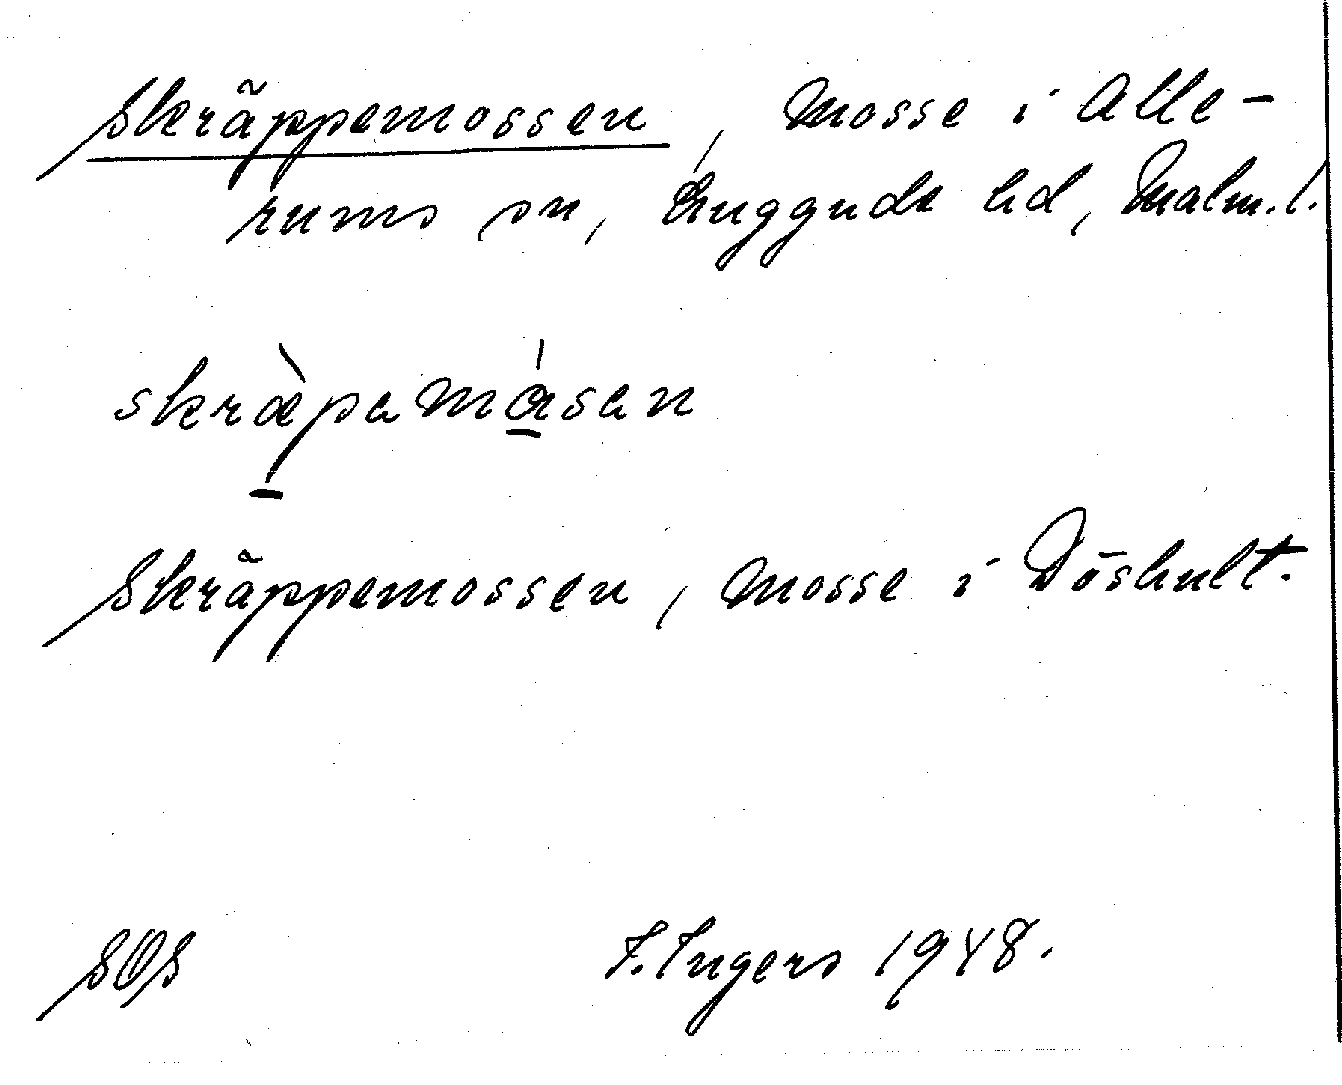 Skräppemossen, Mosse i Alle-
rums sn, Luggude hd, Malm. l.
skræ̀pamåsen
Skräppemossen, Mosse i Döshult.
SOS I. Ingers 1948.